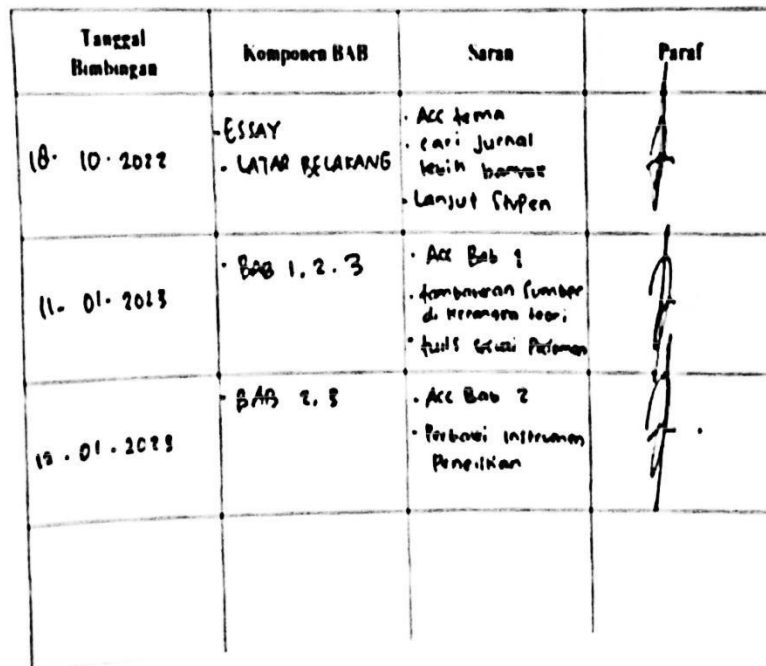 Tanggal
Bimbingan
Komponen BAB
Saran
Paraf
18. 10. 2022
- ESSAY
- LATAR BELAKANG
- Acc tema
- cari jurnal
lebih
- Lanjut
11. 01. 2023
- BAB 1, 2, 3
- Acc Bab 1
- Sumber
di kerangka teori
- tulis sesuai Pedoman
. 01. 2023
- BAB 2, 3
- Acc Bab 2
- Perbaiki Instrumen
Penelitian